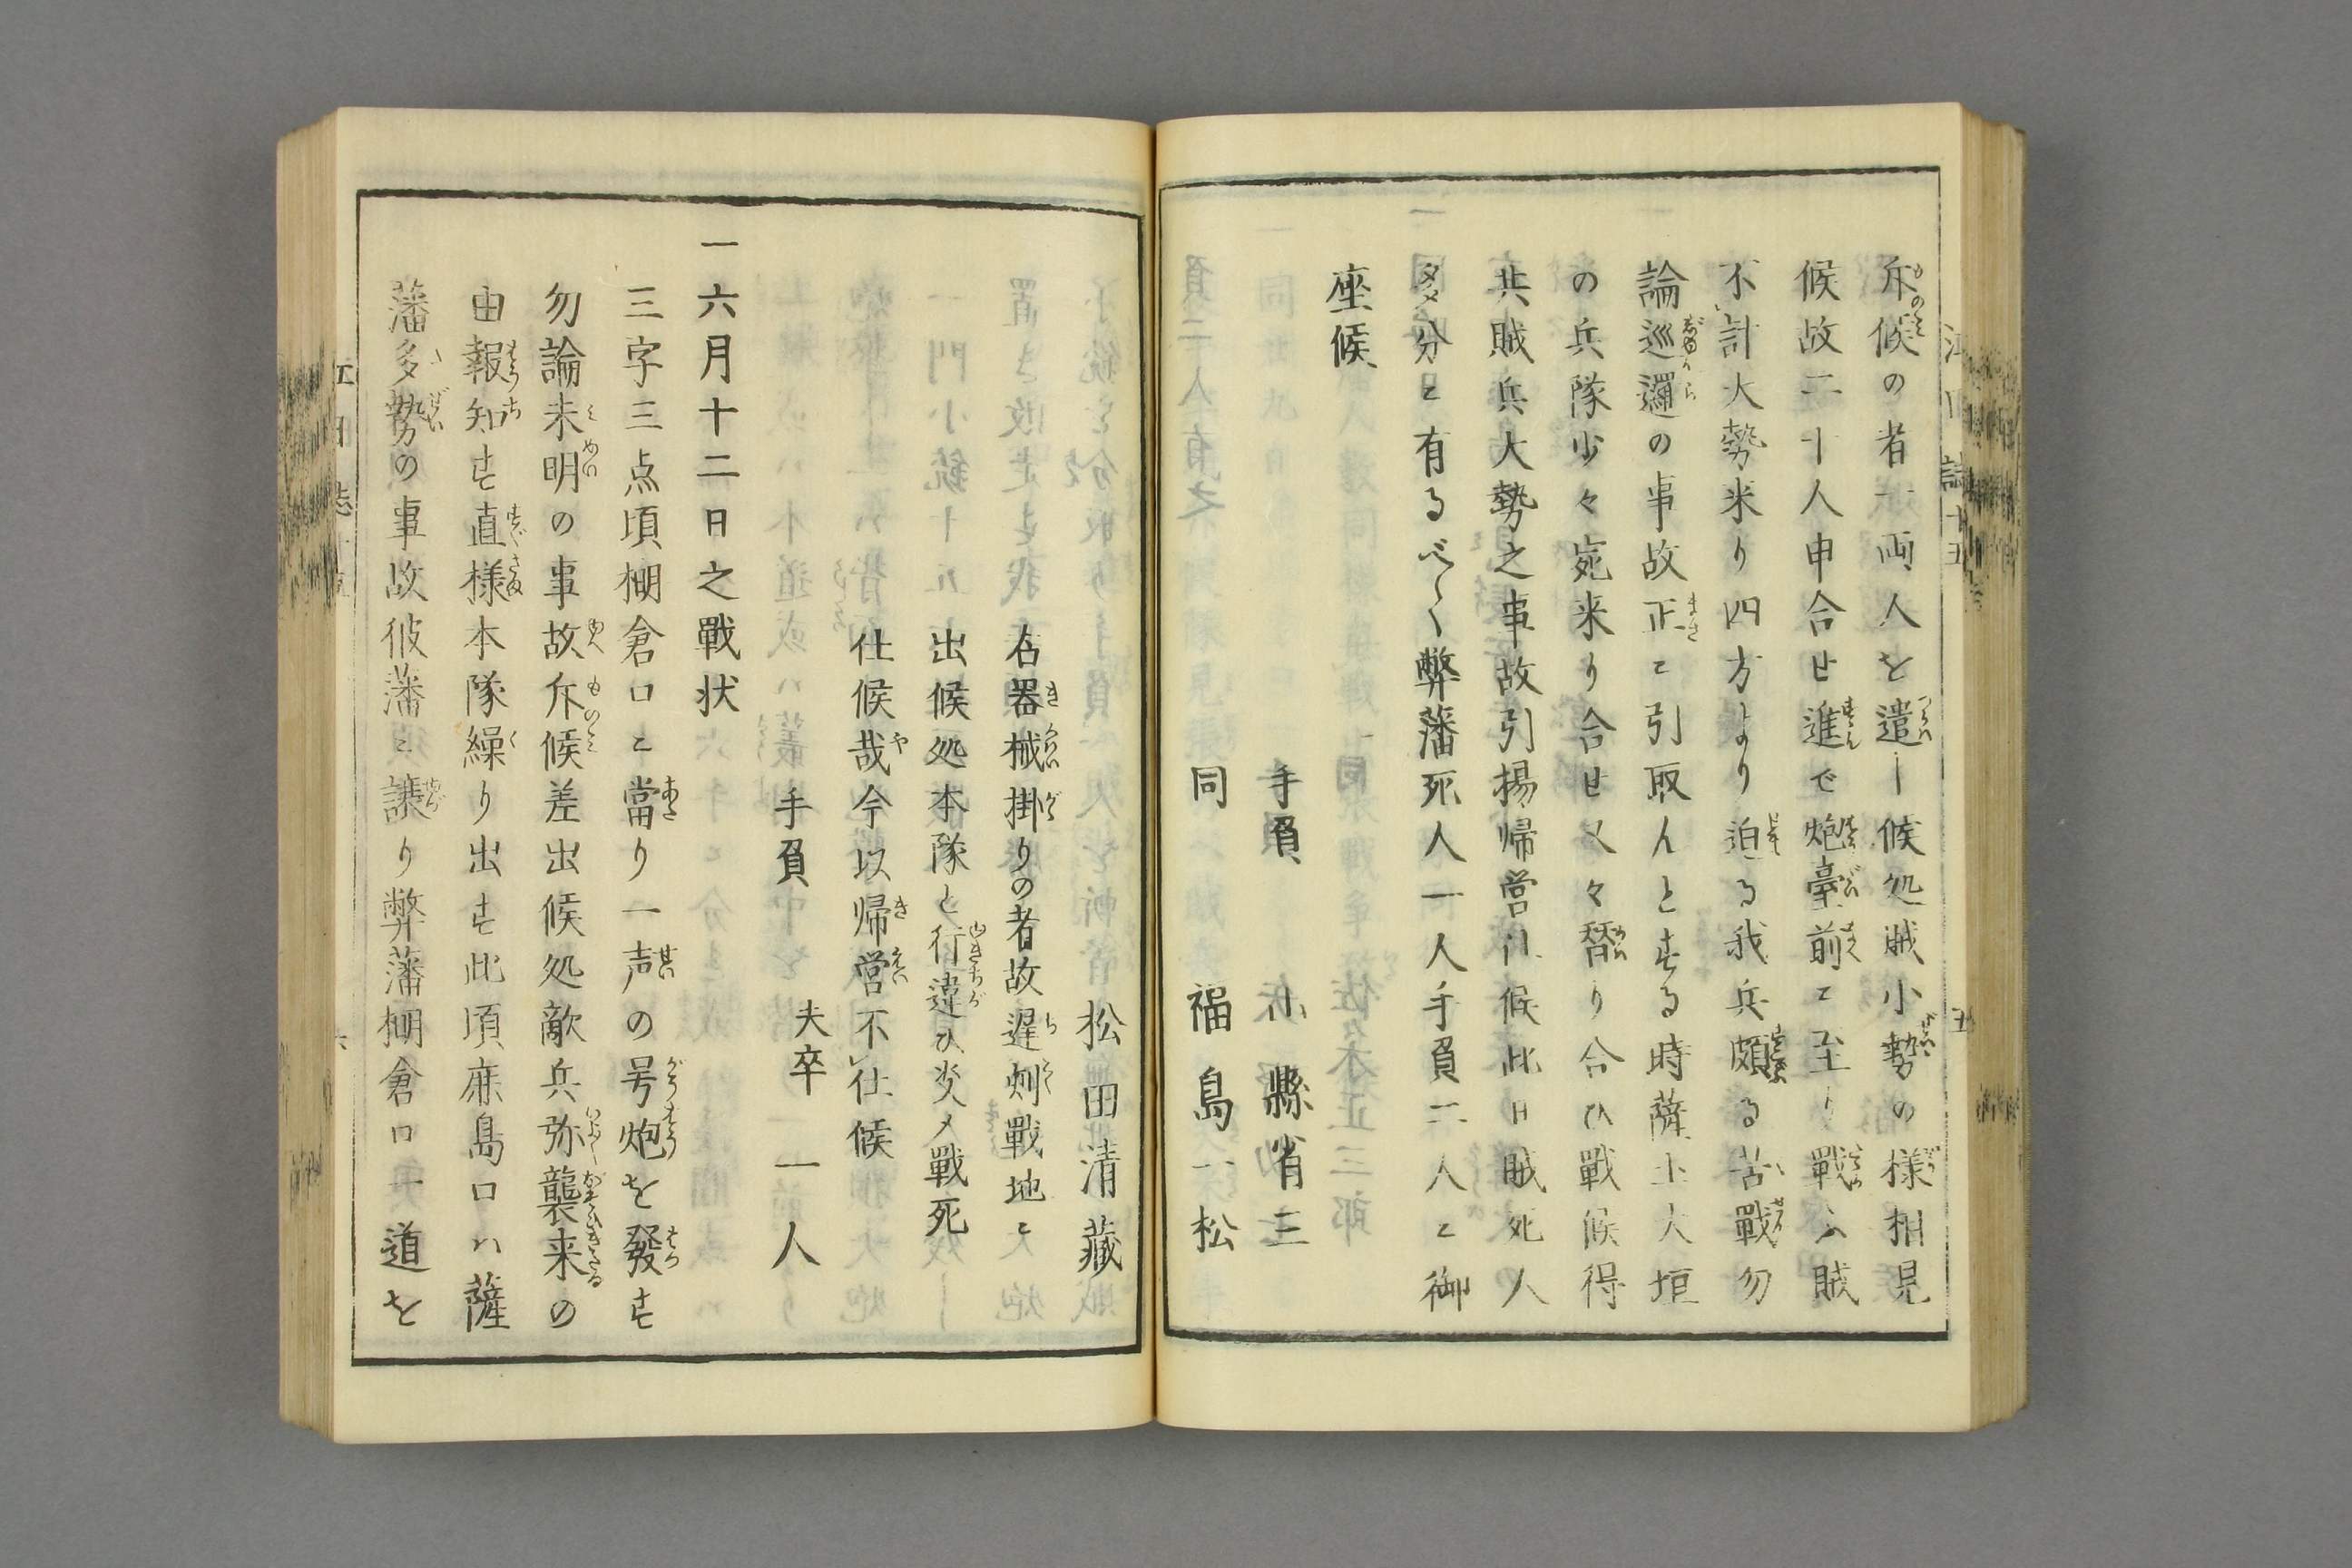 斥候の者一両人を遣し候処賊小勢の様相見
候故二十人申合せ進で炮臺前に至り戰ふ賊
不計大勢来り四方より迫る我兵頗る苦戰勿
論巡邏の事故正に引取んとする時薩土大垣
の兵隊少々宛来り合せ又々替り合ひ戰候得
共賊兵大勢之事故引揚帰営仕候此日賊死人
多分に有るべく弊藩死人一人手負二人に御
座候
手負 小縣省三
同 福島一松
松田清藏
右器械掛りの者故遅刻戰地に
出候処本隊と行違ひ炎〆戰死
仕候哉今以帰営不仕候
手負 夫卒 一人
一六月十二日之戰状
三字三点頃棚倉口に當り一声の号炮を發す
勿論未明の事故斥候差出候処敵兵弥襲来の
由報知す直様本隊繰り出す此頃麻島口ハ薩
藩多勢の事故彼藩に譲り弊藩棚倉口一道を